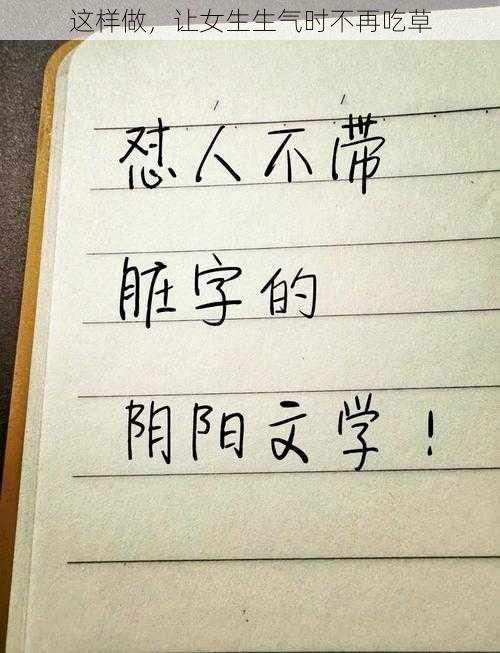 这样做，让女生生气时不再吃草
怼人不带
脏字的
阴阳文学！